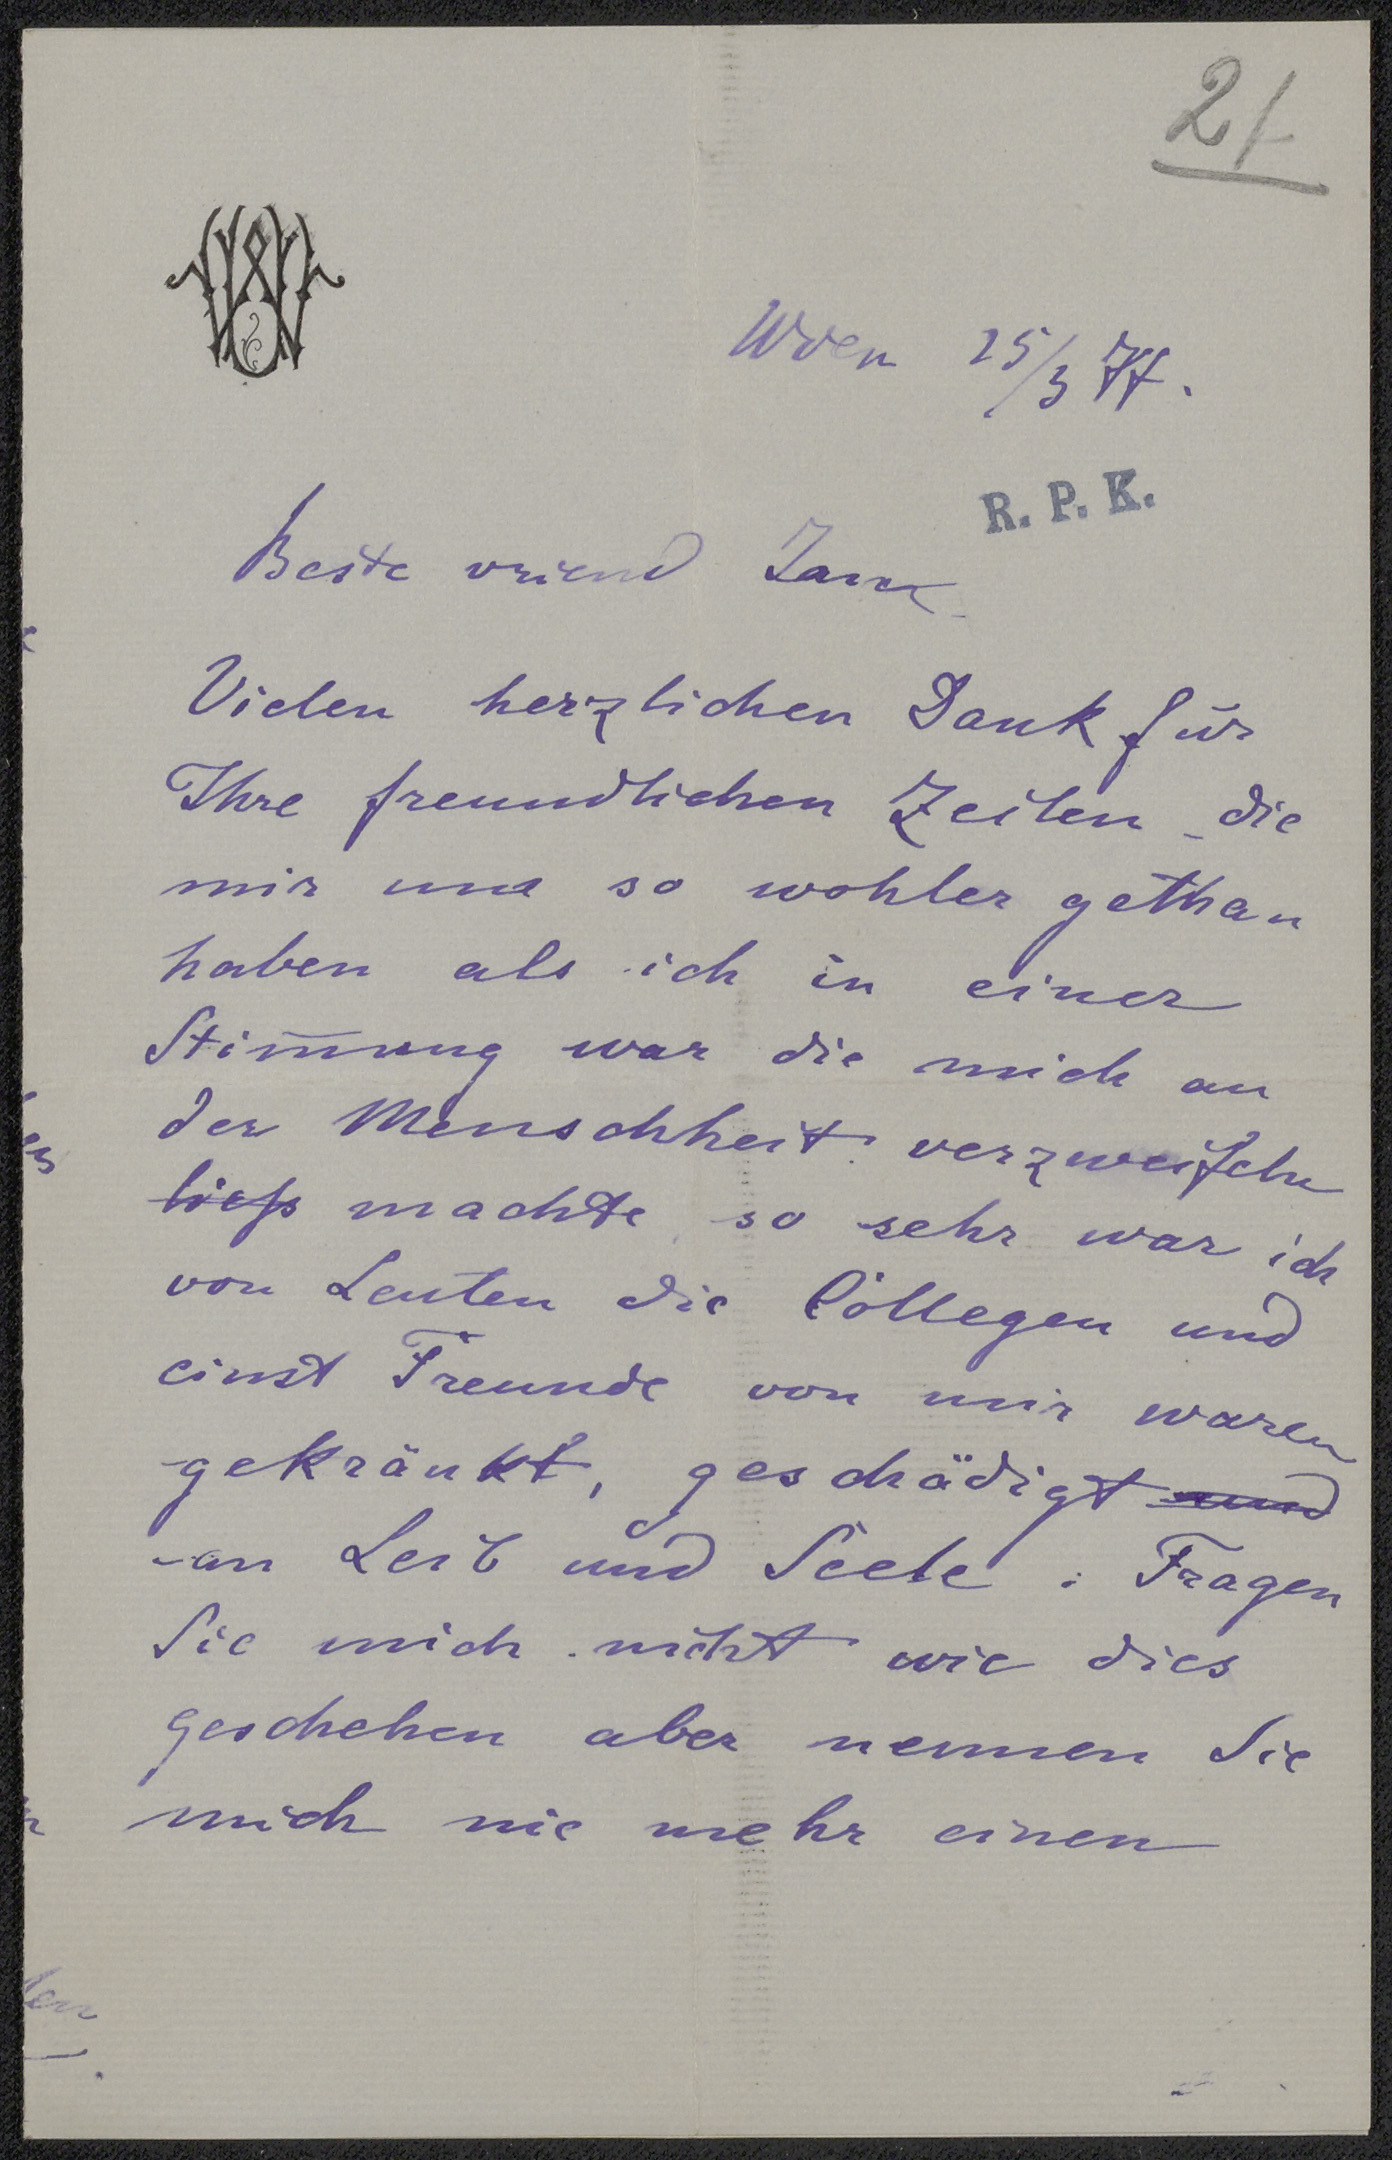 21
Wien 25/3 77.
R. P. K.
Beste vriend Zanc
Vielen herzlichen Dank für
Ihre freundlichen Zeilen die
mir um so wohler gethan
haben als ich in einer
Stim̅ung war die mich an
der Menschheit verzweifeln
liefs machte so sehr war ich
von Leuten die Collegen und
einst Freunde von mir waren
gekränkt, geschädigt und
an Leib und Seele. Fragen
Sie mich nicht wie dies
geschehen aber nennen Sie
mich nie mehr einen